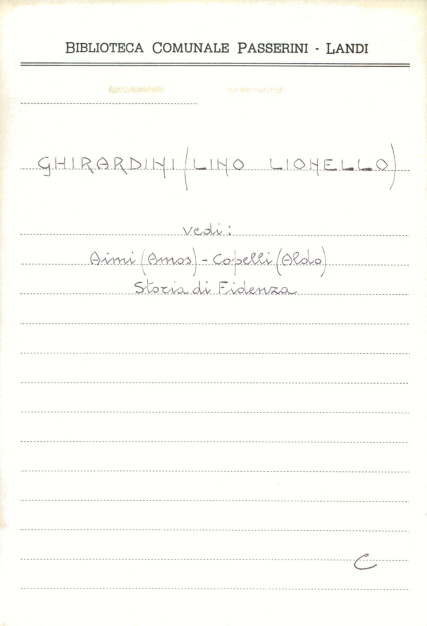 BIBLIOTECA COMUNALE PASSERINI - LANDI
GHIRARDINI (LINO LIONELLO)
vedi:
Aimi (Amos) - Copelli (Aldo)
Storia di Fidenza
C